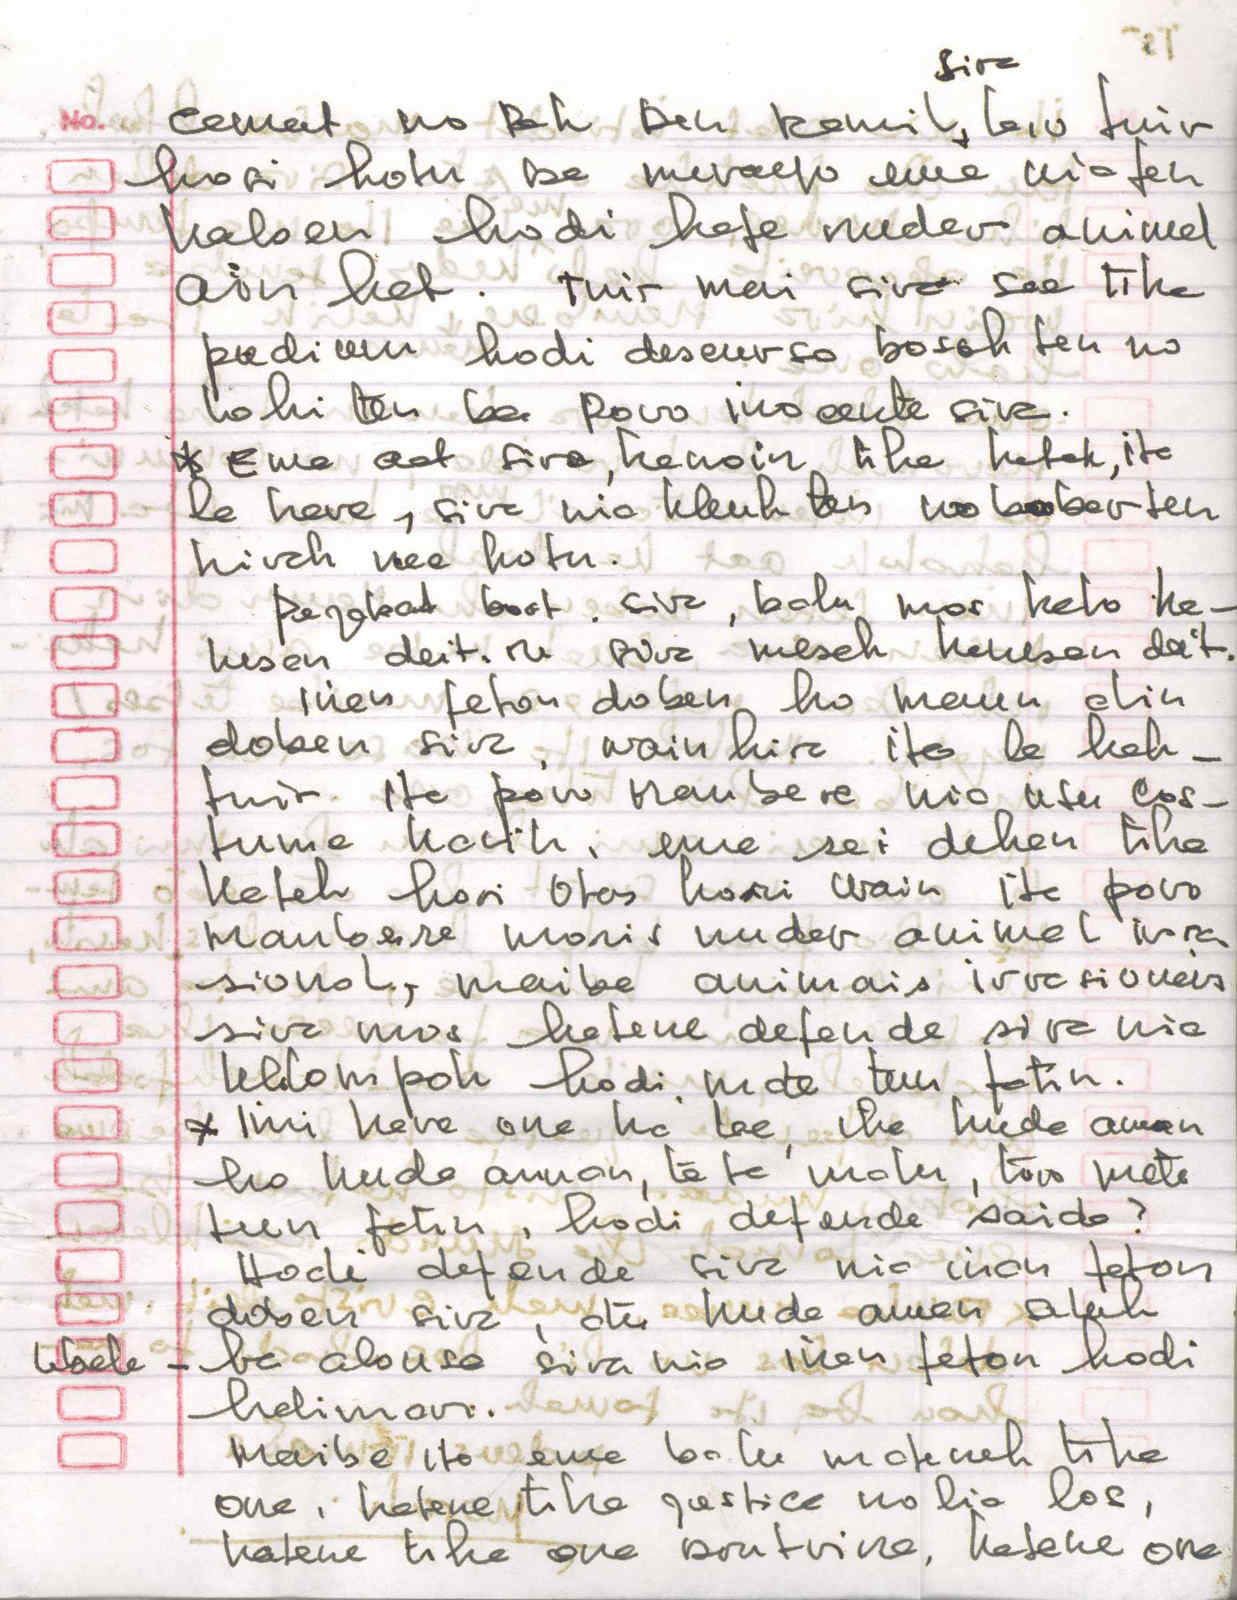 sira
No. camat no Pak Den Ramil, lao tuir
hosi hotu ba meraefo eme nia fen
halsen hodi hafe nuder animal
ain hat. Tuir mai sira sae tiha
podium hodi discurso bosok ten no
lohi ten ba povo inocente sira.
* Ema aat sira, hanoin tiha hatak, ita
la hare, sira nia klauk ten no bober ten
hirak nee hotu.
Pejabat boot sira, balu mos halo ha-
nesan deit. ne sira mesak hanesan deit.
Inan feton doben ho maun alin
doben sira, wainhira ita la hak-
tuir ita povo Maubere nia usu cos-
tume karik, ema sei dehan tiha
katak hosi Otas hosi Wain ita povo
Maubere moris nuder animal irra
sional, maibe animais irrasionais
sira mos hatene defende sira nia
klompok hodi mate tun fatin.
* Imi hare ona ka lae, iha kuda aman
ho kuda aman, tata malu, too mate
tun fatin, hodi defende saida?
Hodi defende sira nia inan feton
doben sira, atu kuda aman seluk
labele - ba abusa sira nia inan feton hodi
halimar.
Maibe ita ema balu matenek tiha
ona, hatene tiha justica no lia los,
hatene tiha ona doutrina, hatene ona